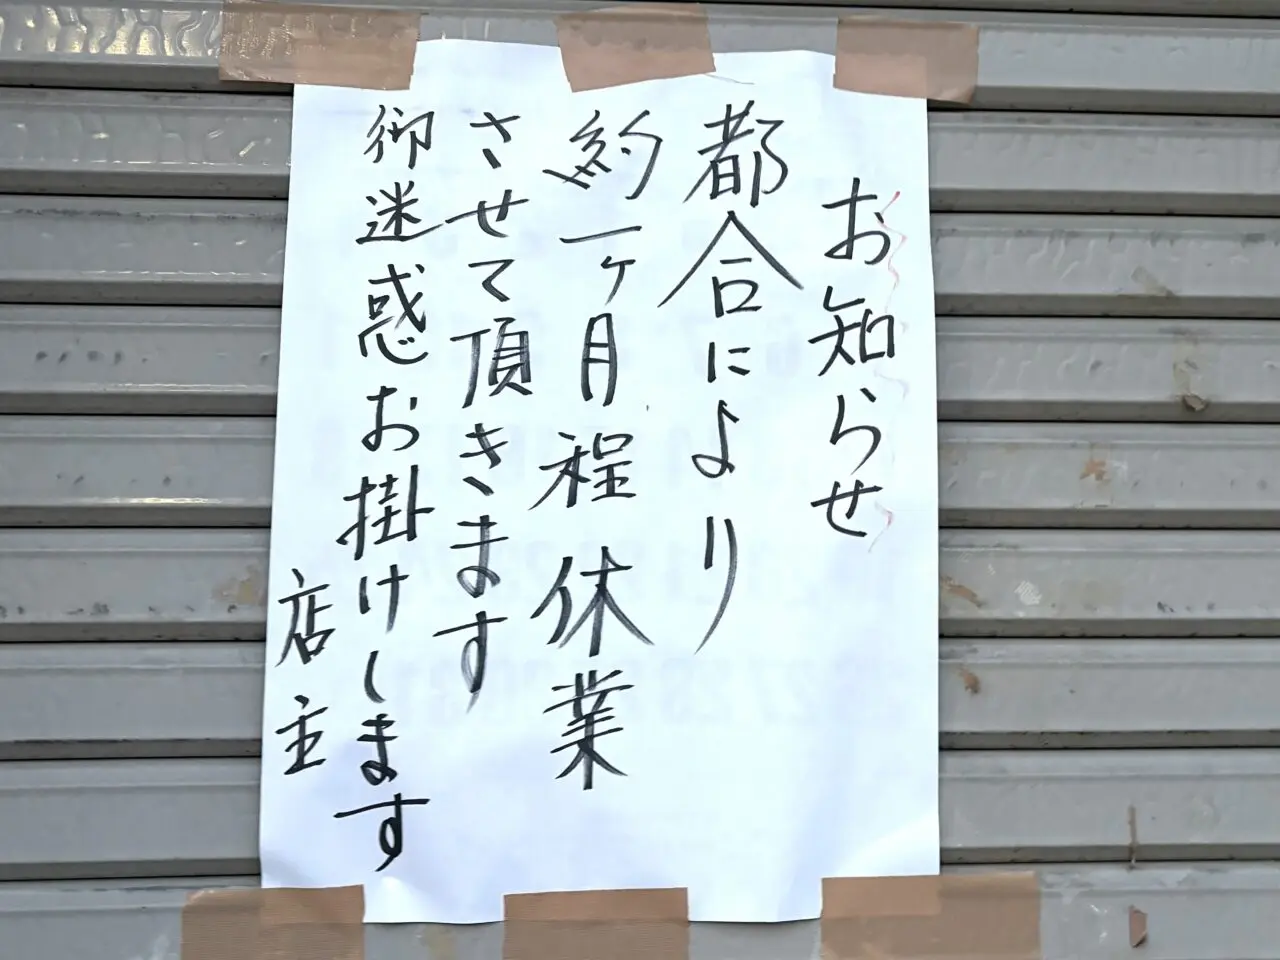 お知らせ
都合により
約一ヶ月程 休業
させて頂きます
御迷惑お掛けします
店主